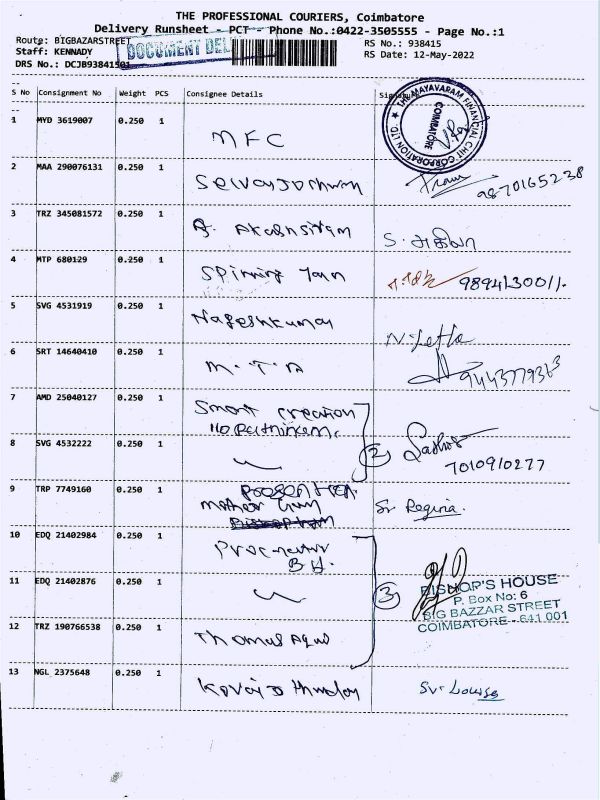 THE PROFESSIONAL COURIERS, Coimbatore
Delivery Runsheet - PCT - Phone No.:0422-3505555 - Page No.:1
Route: BIGBAZARSTREET RS No.: 938415
Staff: KENNADY RS Date: 12-May-2022
DOCUMENT DEL
DRS No.: DCJB93841501
S No Consignment No Weight PCS Consignee Details
THE MAYAVARAM FINANCIAL CHIT CORPORATION LTD.
COIMBATORE
1 MYD 3619007 0.250 1 MFC
2 MAA 290076131 0.250 1 9870165238
3 TRZ 345081572 0.250 1 A. S. அகிலா
4 MTP 680129 0.250 1 Spinning 9894130011.
5 SVG 4531919 0.250 1 Nageshkumar N.
6 SRT 14640410 0.250 1 M.T.A 9443779363
7 AMD 25040127 0.250 1 Smart Creation
8 SVG 4532222 0.250 1 2 7010910277
9 TRP 7749160 0.250 1 Sr Regina.
mother
10 EDQ 21402984 0.250 1 Procurator
B.H.
11 EDQ 21402876 0.250 1 3
BISHOP'S HOUSE
P. Box No: 6
BIG BAZZAR STREET
COIMBATORE - 641 001
12 TRZ 190766538 0.250 1 Thomas
13 NGL 2375648 0.250 1 Sr. Louise